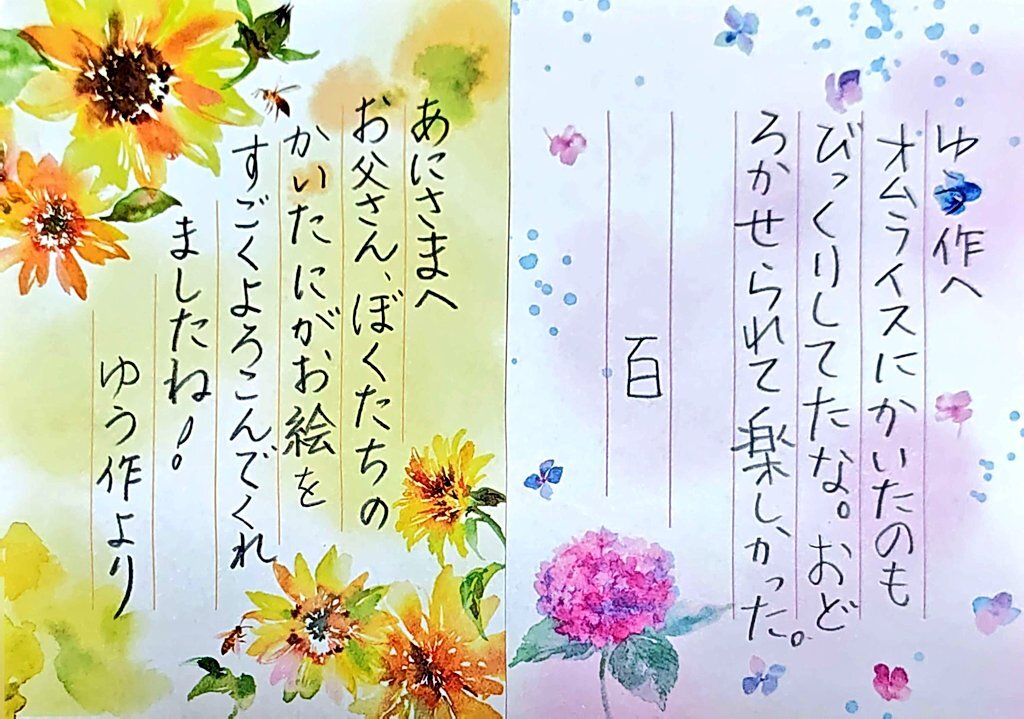 あにさまへ
お父さん、ぼくたちの
かいたにがお絵を
すごくよろこんでくれ
ましたね!。
ゆう作より
ゆう作へ
オムライスにかいたのも
びっくりしてたな。おど
ろかせられて楽しかった。
百